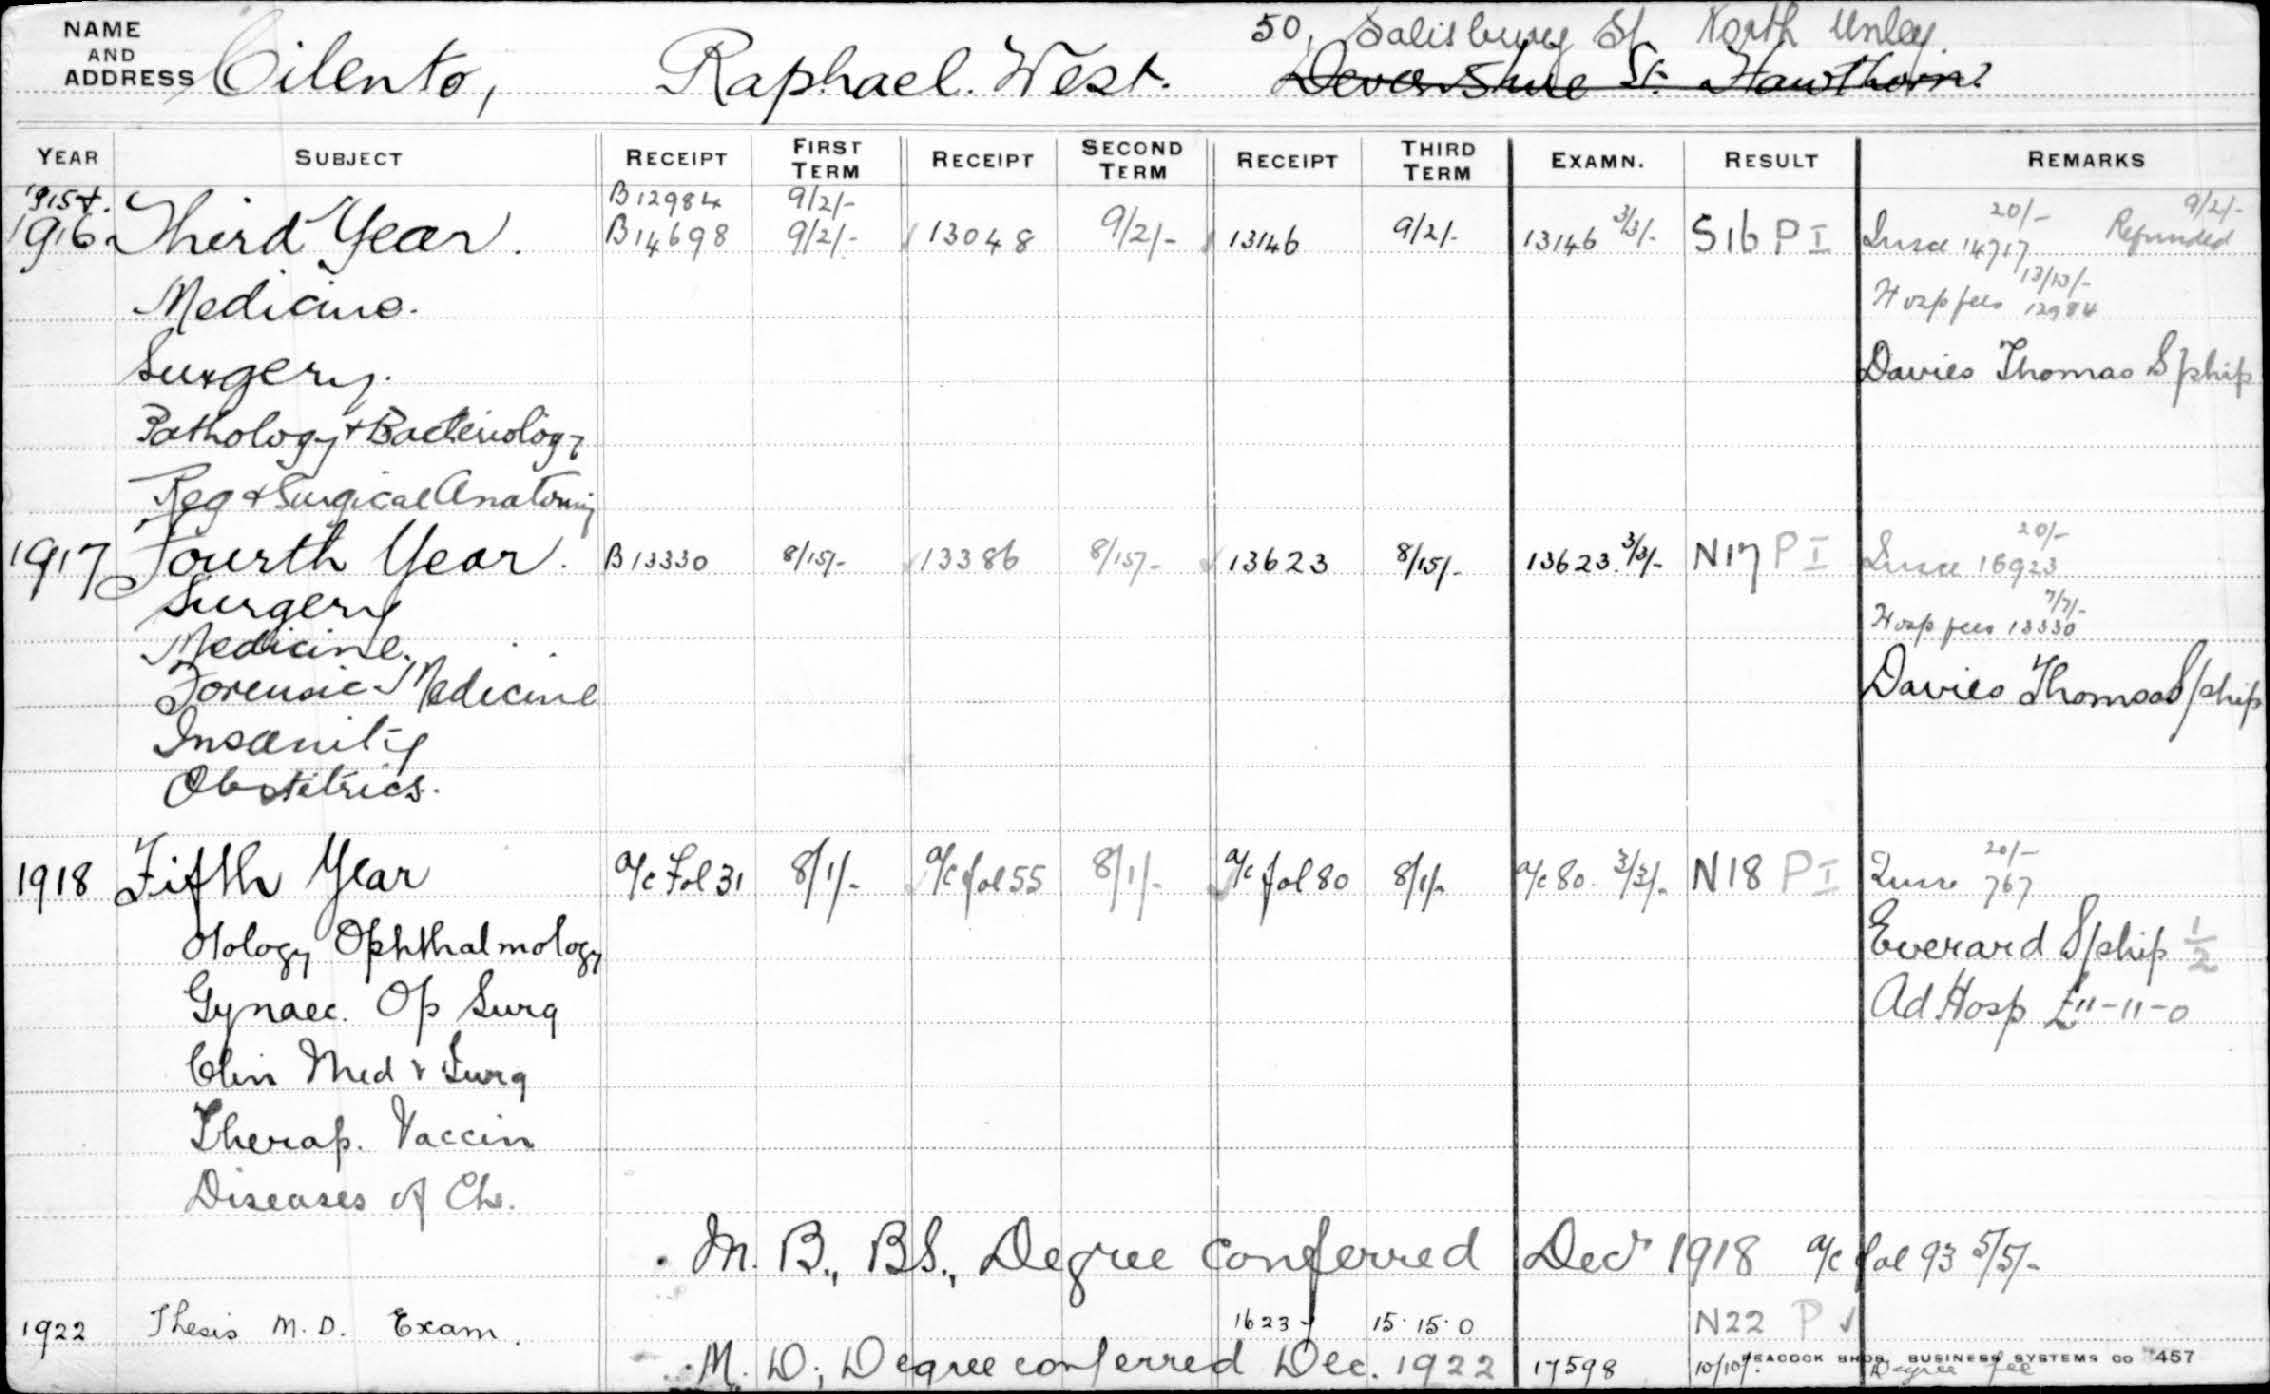 NAME AND ADDRESS Cilento, Raphael. West. 50, Salisbury St North Unley.
Devonshire St. Hawthorn
YEAR SUBJECT RECEIPT FIRST TERM RECEIPT SECOND TERM RECEIPT THIRD TERM EXAMN. RESULT REMARKS
1915+. B12984 9/2/- 20/- 9/2/-
1916 Third Year. B14698 9/2/- 13048 9/2/- 13146 9/2/- 13146 3/3/- S16 P I 14717 Refunded
Medicine. Hosp fees 13/13/- 12984
Surgery. Davies Thomas S/ship
Pathology + Bacteriology
Reg + Surgical Anatomy
1917 Fourth Year. B13330 8/15/- 13386 8/15/- 13623 8/15/- 13623. 3/3/- N17 P I 20/- 16923
Surgery Hosp fees 7/7/- 13330
Medicine.
Forensic Medicine Davies Thomas S/ship
Insanity
Obstetrics.
1918 Fifth Year a/c Fol 31 8/1/- a/c fol 55 8/1/- a/c fol 80 8/1/- a/c 80. 3/3/- N18 P I 20/- 767
Otology Ophthalmology Everard S/ship 1/2
Gynaec. Op Surg Ad Hosp £11-11-0
Clin Med & Surg
Therap. Vaccin
Diseases of Ch.
M. B., BS., Degree conferred Decr 1918 a/c fol 93 5/5/-
1922 Thesis M.D. Exam. 1623 15.15.0 N22 P ✓
M. D; Degree conferred Dec. 1922 17598 10/10/- Degree fee
PEACOCK BROS. BUSINESS SYSTEMS CO 457